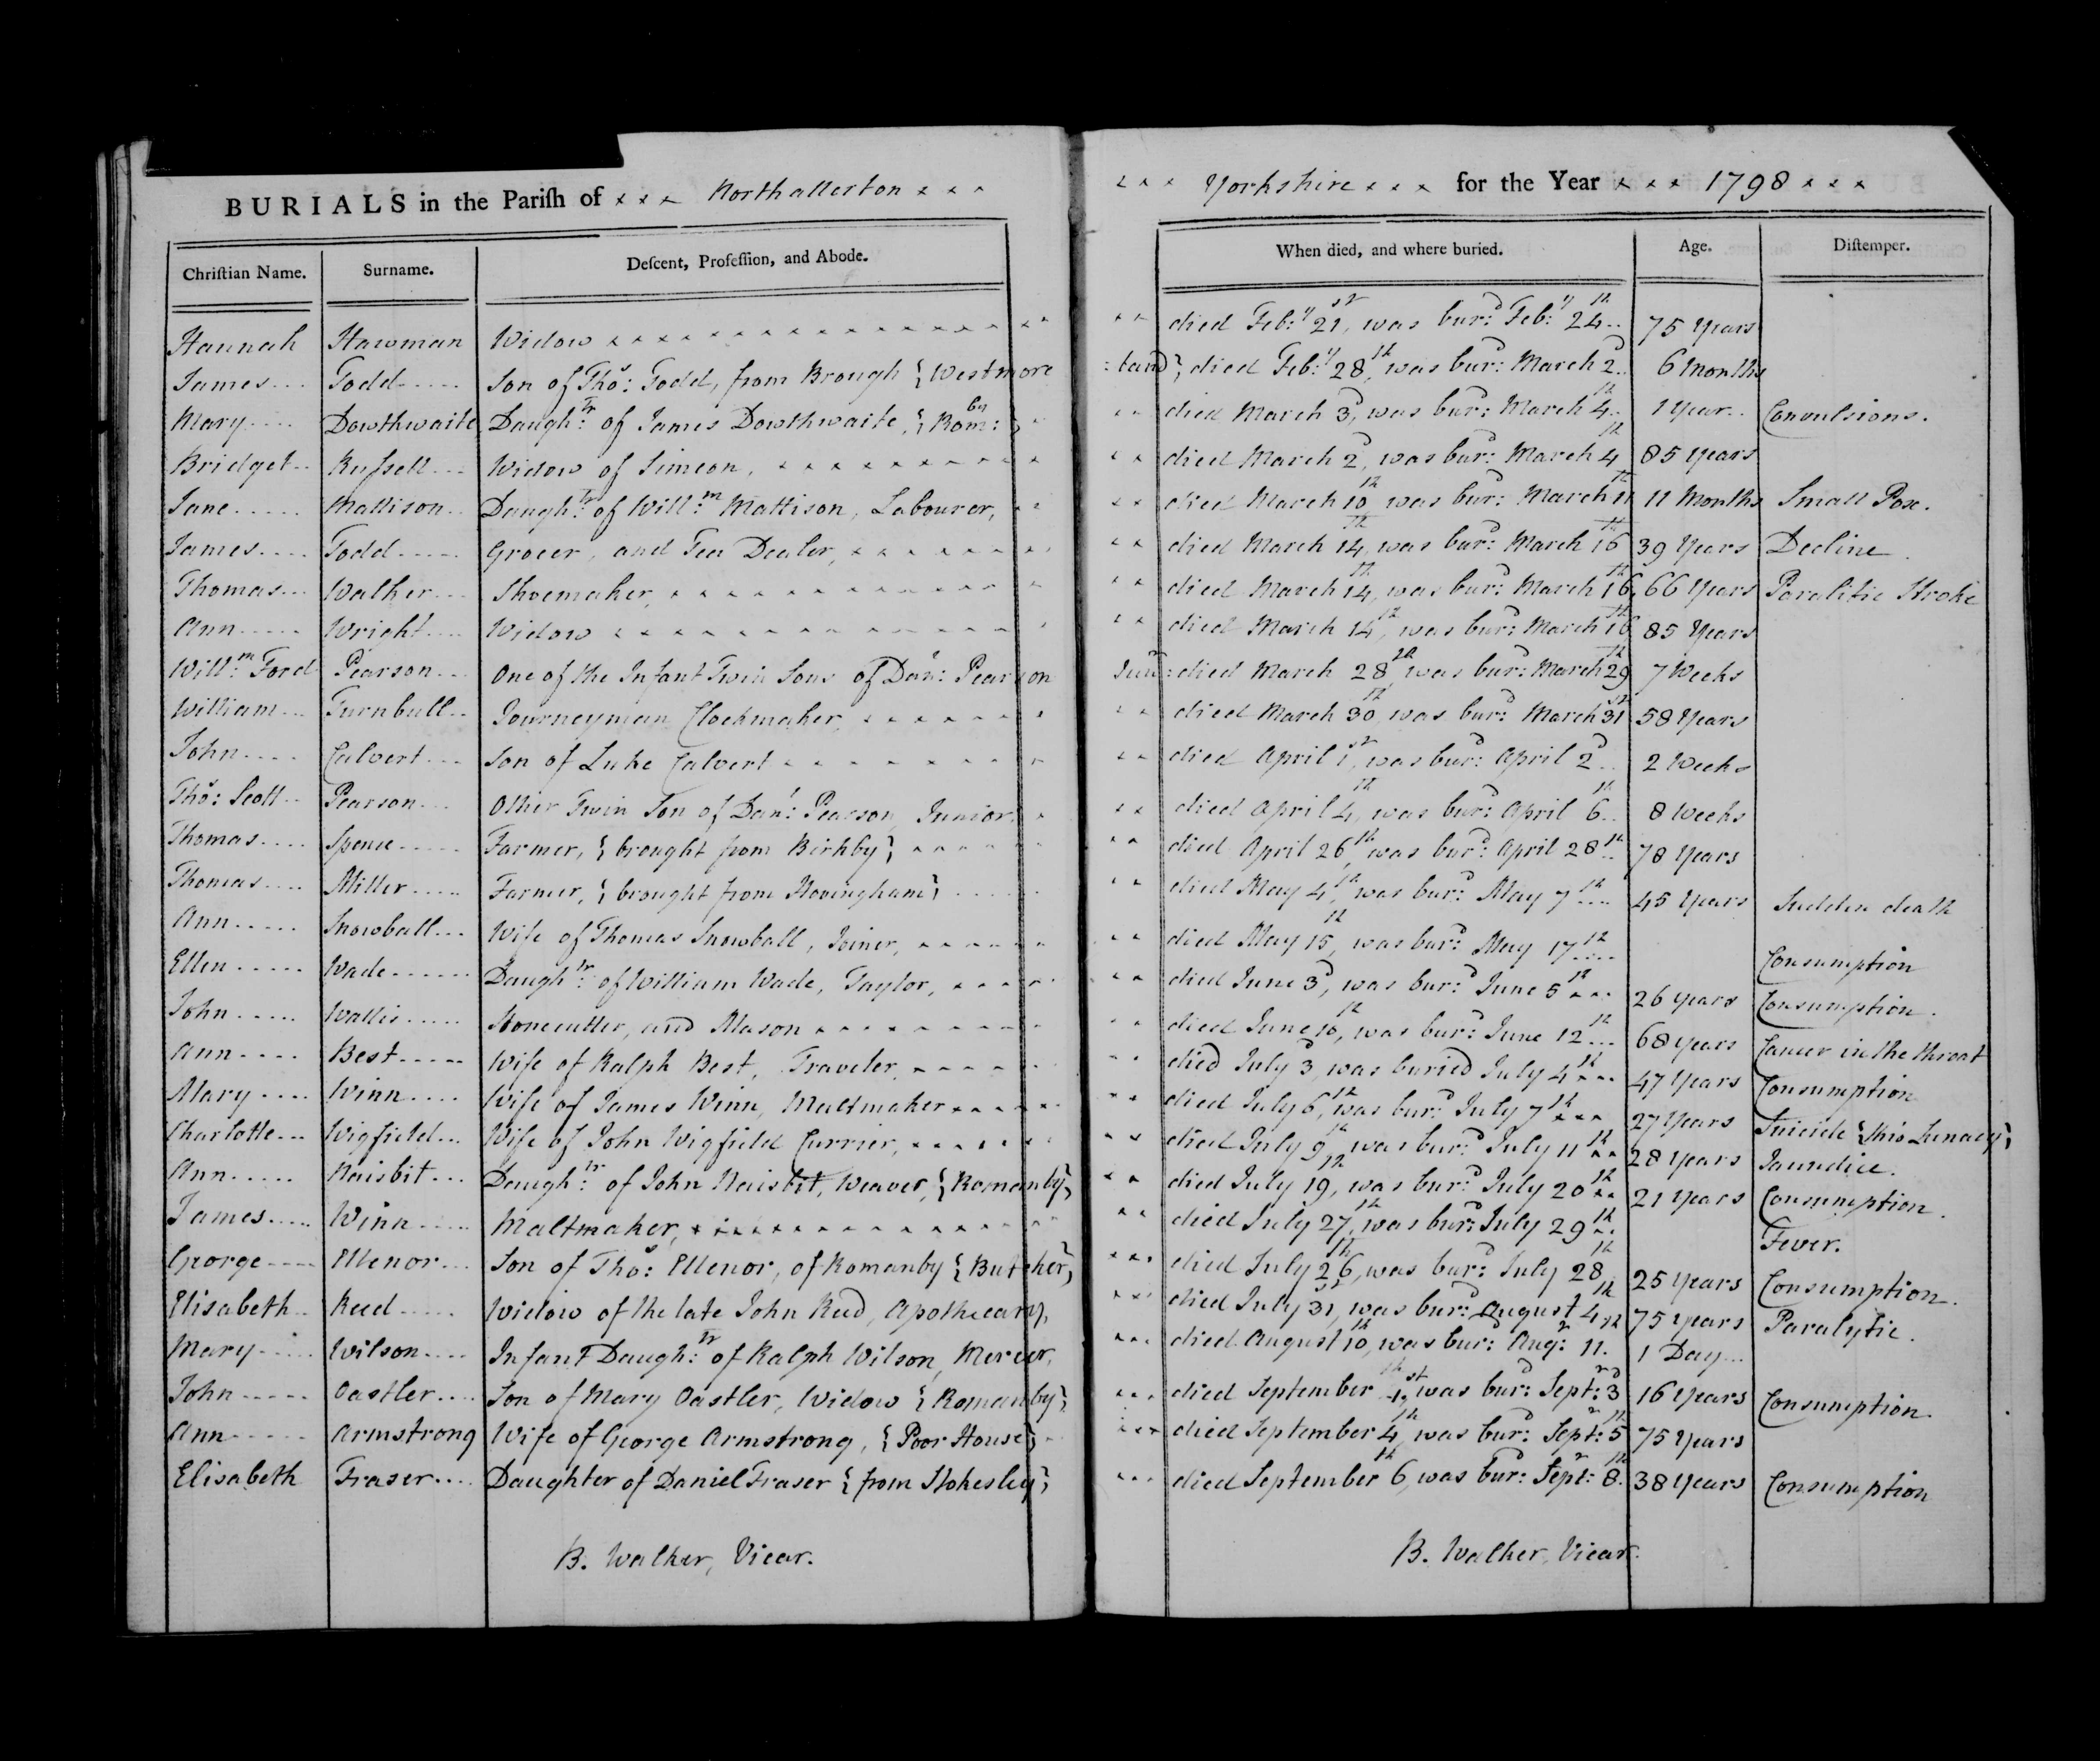 BURIALS in the Pariſh of x x x Northallerton x x x
x x x Yorkshire x x x for the Year x x x 1798 x x x
Chriſtian Name. Surname. Deſcent, Profeſſion, and Abode. When died, and where buried. Age. Diſtemper.
Hannah Hawman Widow died Feb:y 21st, was bur:d Feb:y 24th 75 Years
James Todd Son of Tho:s Todd, from Brough {Westmore:land}, died Feb:y 28th, was bur:d March 2d 6 Months
Mary Dowthwaite Daugh:tr of James Dowthwaite, {Rom:by} died March 3d, was bur:d March 4th 1 Year Convulsions.
Bridget Russell Widow of Simeon, died March 2d, was bur:d March 4th 85 Years
Jane Mattison Daugh:tr of Will:m Mattison, Labourer, died March 10th, was bur:d March 11th 11 Months Small Pox.
James Todd Grocer, and Tea Dealer, died March 14th, was bur:d March 16th 39 Years Decline.
Thomas Walker Shoemaker, died March 14th, was bur:d March 16th 66 Years Paralitic Stroke
Ann Wright Widow died March 14th, was bur:d March 16th 85 Years
Will:m Ford Pearson One of the Infant Twin Sons of Dan:l Pearson Jun:r died March 28th, was bur:d March 29th 7 Weeks
William Turnbull Journeyman Clockmaker, died March 30th, was bur:d March 31st 58 Years
John Calvert Son of Luke Calvert died April 1st, was bur:d April 2d 2 Weeks
Tho:s Scott Pearson Other Twin Son of Dan:l Pearson, Junior, died April 4th, was bur:d April 6th 8 Weeks
Thomas Spence Farmer, {brought from Birkby} died April 26th, was bur:d April 28th 78 Years
Thomas Miller Farmer, {brought from Hovingham} died May 4th, was bur:d May 7th 45 Years Sudden death
Ann Snowball Wife of Thomas Snowball, Joiner, died May 15th, was bur:d May 17th Consumption
Ellen Wade Daugh:tr of William Wade, Taylor, died June 3d, was bur:d June 5th 26 Years Consumption.
John Wallis Stonecutter, and Mason died June 10th, was bur:d June 12th 68 Years Cancer in the throat
Ann Best Wife of Ralph Best, Traveler, died July 3d, was buried July 4th 47 Years Consumption
Mary Winn Wife of James Winn, Maltmaker died July 6th, was bur:d July 7th 27 Years Suicide {thro Lunacy}
Charlotte Wigfield Wife of John Wigfield Currier, died July 9th, was bur:d July 11th 28 Years Jaundice.
Ann Naisbit Daugh:tr of John Naisbit, Weaver, {Romanby}, died July 19th, was bur:d July 20th 21 Years Consumption.
James Winn Maltmaker, died July 27th, was bur:d July 29th Fever.
George Ellenor Son of Tho:s Ellenor, of Romanby {Butcher}, died July 26th, was bur:d July 28th 25 Years Consumption.
Elisabeth Reed Widow of the late John Reed, Apothecary, died July 31st, was bur:d August 4th 75 Years Paralytic.
Mary Wilson Infant Daugh:tr of Ralph Wilson, Mercer, died August 10th, was bur:d Aug:t 11th 1 Day
John Oastler Son of Mary Oastler, Widow {Romanby} died September 1st, was bur:d Sept:r 3d 16 Years Consumption.
Ann Armstrong Wife of George Armstrong, {Poor House} died September 4th, was bur:d Sept:r 5th 75 Years
Elisabeth Fraser Daughter of Daniel Fraser {from Stokesley} died September 6th, was bur:d Sept:r 8th 38 Years Consumption
B. Walker, Vicar. B. Walker, Vicar.